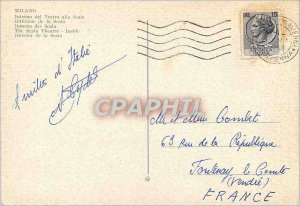 MILANO
Interno del Teatro alla Scala
Intérieur de la Scala
Inneres der Scala
The Scala Theatre - Inside
Interior de la Scala
Amitiés d'Italie
M et Mme Combet
63 rue de la République
Fontenay le Comte
(Vendée)
FRANCE
DELCAMPE